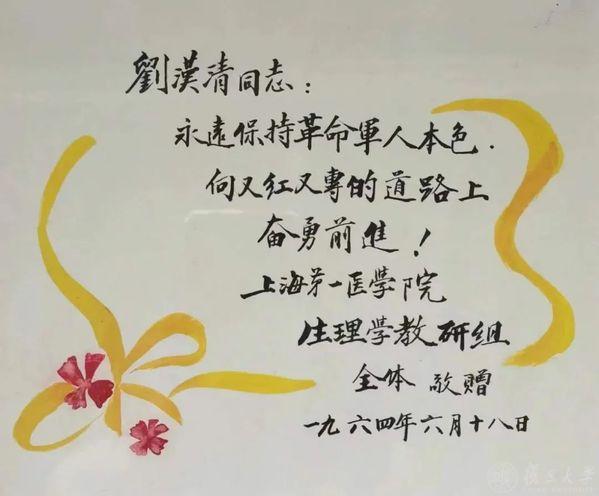 劉漢清同志：
永遠保持革命軍人本色．
向又红又專的道路上
奋勇前進！
上海第一医學院
生理學教研组
全体 敬贈
一九六四年六月十八日
復旦大學